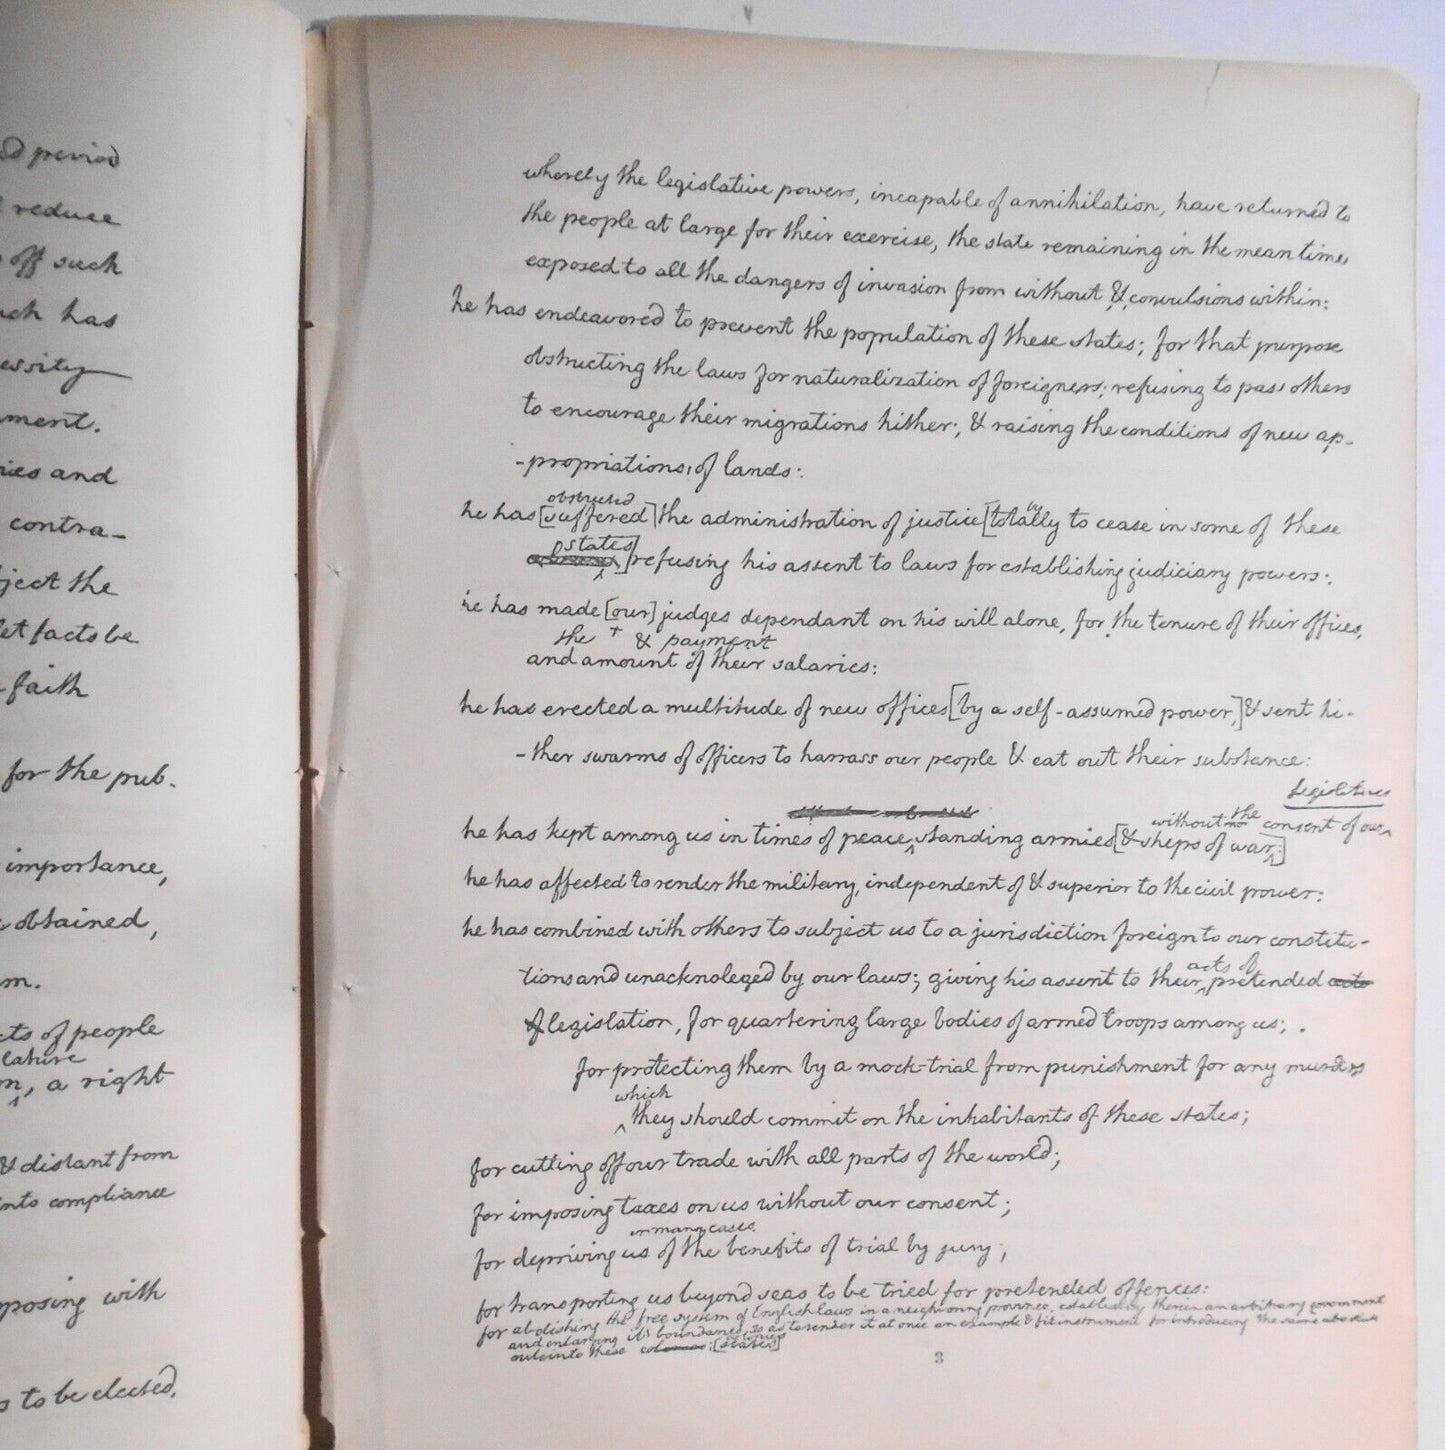 period
reduce
off such
has
ment.
and
contra-
ject the
let facts be
faith
for the pub-
importance,
obtained,
m.
cts of people
lature
, a right
& distant from
into compliance
posing with
s to be elected.
whereby the legislative powers, incapable of annihilation, have returned to
the people at large for their exercise, the state remaining in the mean time,
exposed to all the dangers of invasion from without & convulsions within:
he has endeavored to prevent the population of these states; for that purpose
obstructing the laws for naturalization of foreigners; refusing to pass others
to encourage their migrations hither; & raising the conditions of new ap-
-propriations of lands:
obstructed by
he has [suffered] the administration of justice [totally to cease in some of these
states]
refusing his assent to laws for establishing judiciary powers:
he has made [our] judges dependant on his will alone, for the tenure of their offices,
the + & payment
and amount of their salaries:
he has erected a multitude of new offices [by a self-assumed power,] & sent hi-
-ther swarms of officers to harrass our people & eat out their substance:
legislatures
without the consent of our
he has kept among us in times of peace, standing armies [& ships of war;]
he has affected to render the military, independent of & superior to the civil power:
he has combined with others to subject us to a jurisdiction foreign to our constitu-
acts of
tions and unacknoleged by our laws; giving his assent to their pretended acts
of legislation, for quartering large bodies of armed troops among us;
for protecting them by a mock-trial from punishment for any murders
which
they should commit on the inhabitants of these states;
for cutting off our trade with all parts of the world;
for imposing taxes on us without our consent;
in many cases
for depriving us of the benefits of trial by jury;
for transporting us beyond seas to be tried for pretended offences:
for abolishing the free system of English laws in a neighboring province, establishing therein an arbitrary government
and enlarging it's boundaries so as to render it at once an example & fit instrument for introducing the same absolute
rule into these [states]
3